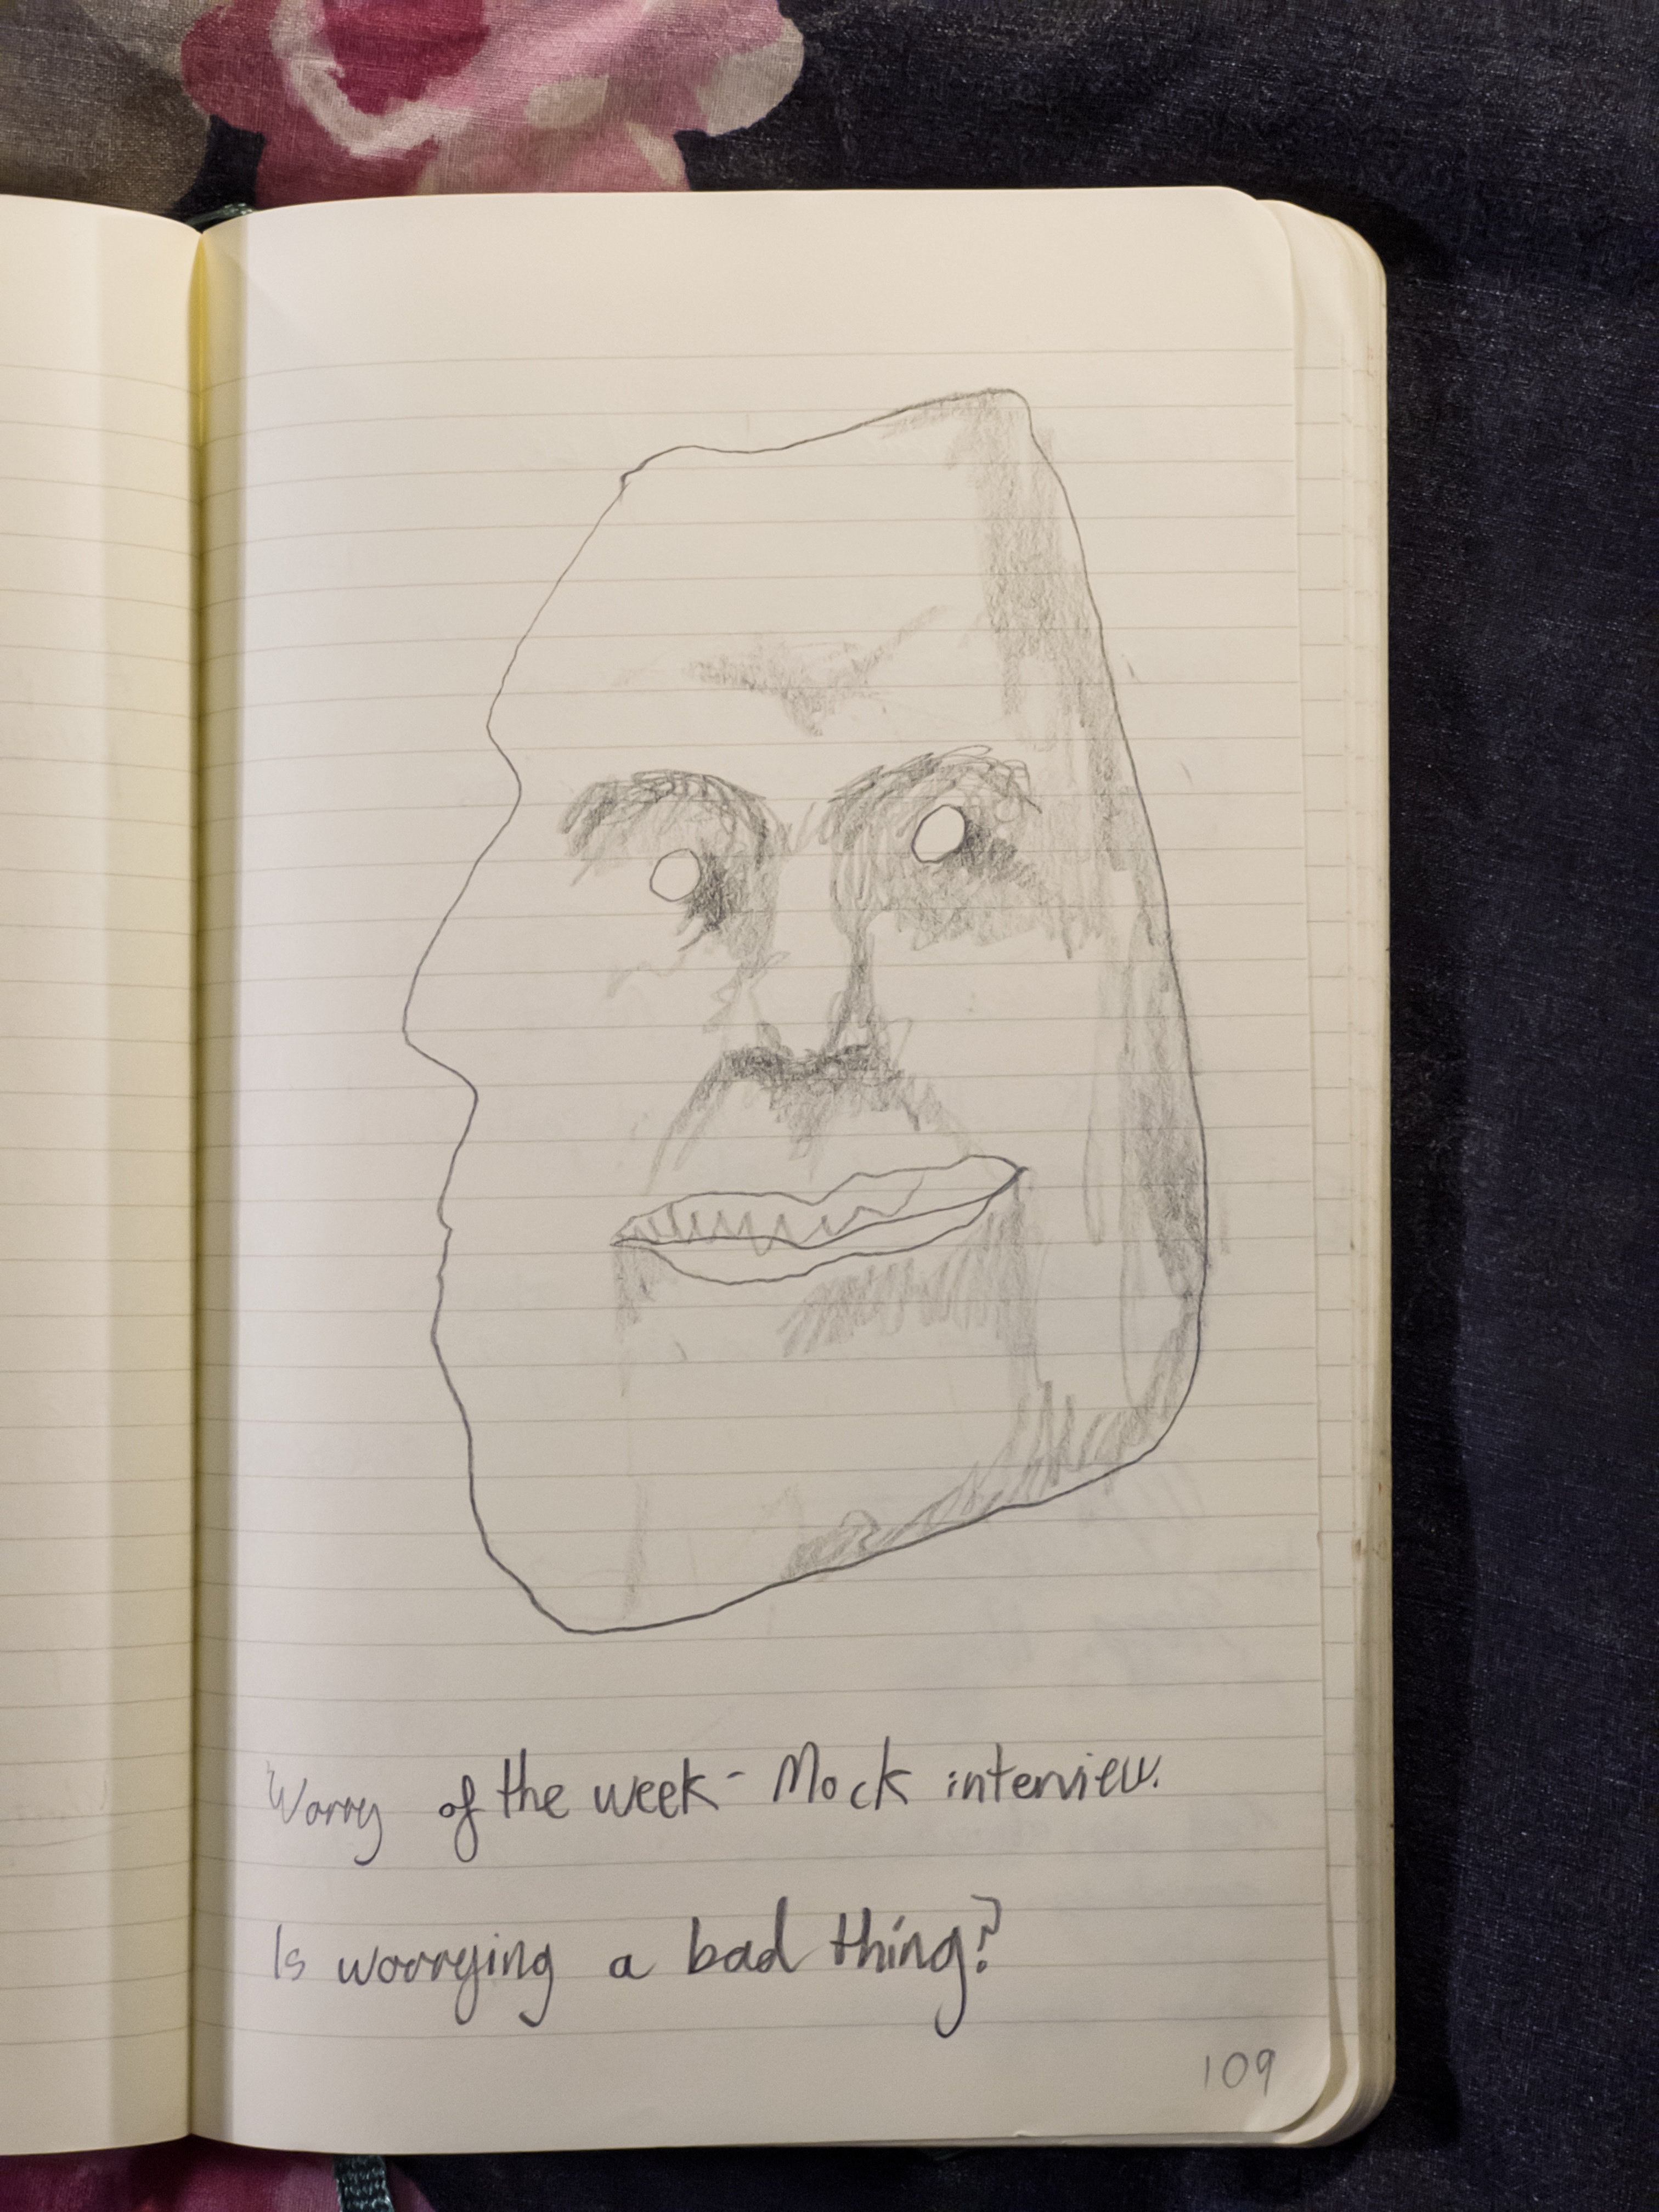 Worry of the week - Mock interview.
Is worrying a bad thing?
109